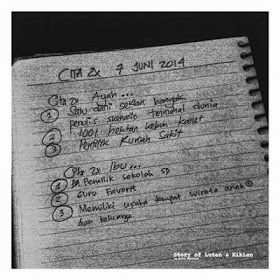 CITA 2X 7 JUNI 2014
Cita 2x Ayah...
1 Satu dari sekian banyak
penulis skenario terkenal dunia
2 1001 hektar kebun karet
3 Pemilik Rumah Sakit
Cita 2x Ibu...
1 Pemilik sekolah SD
2 Guru Favorit
3 Memiliki usaha tempat wisata anak
dan keluarga
Story of Luten & Kikien